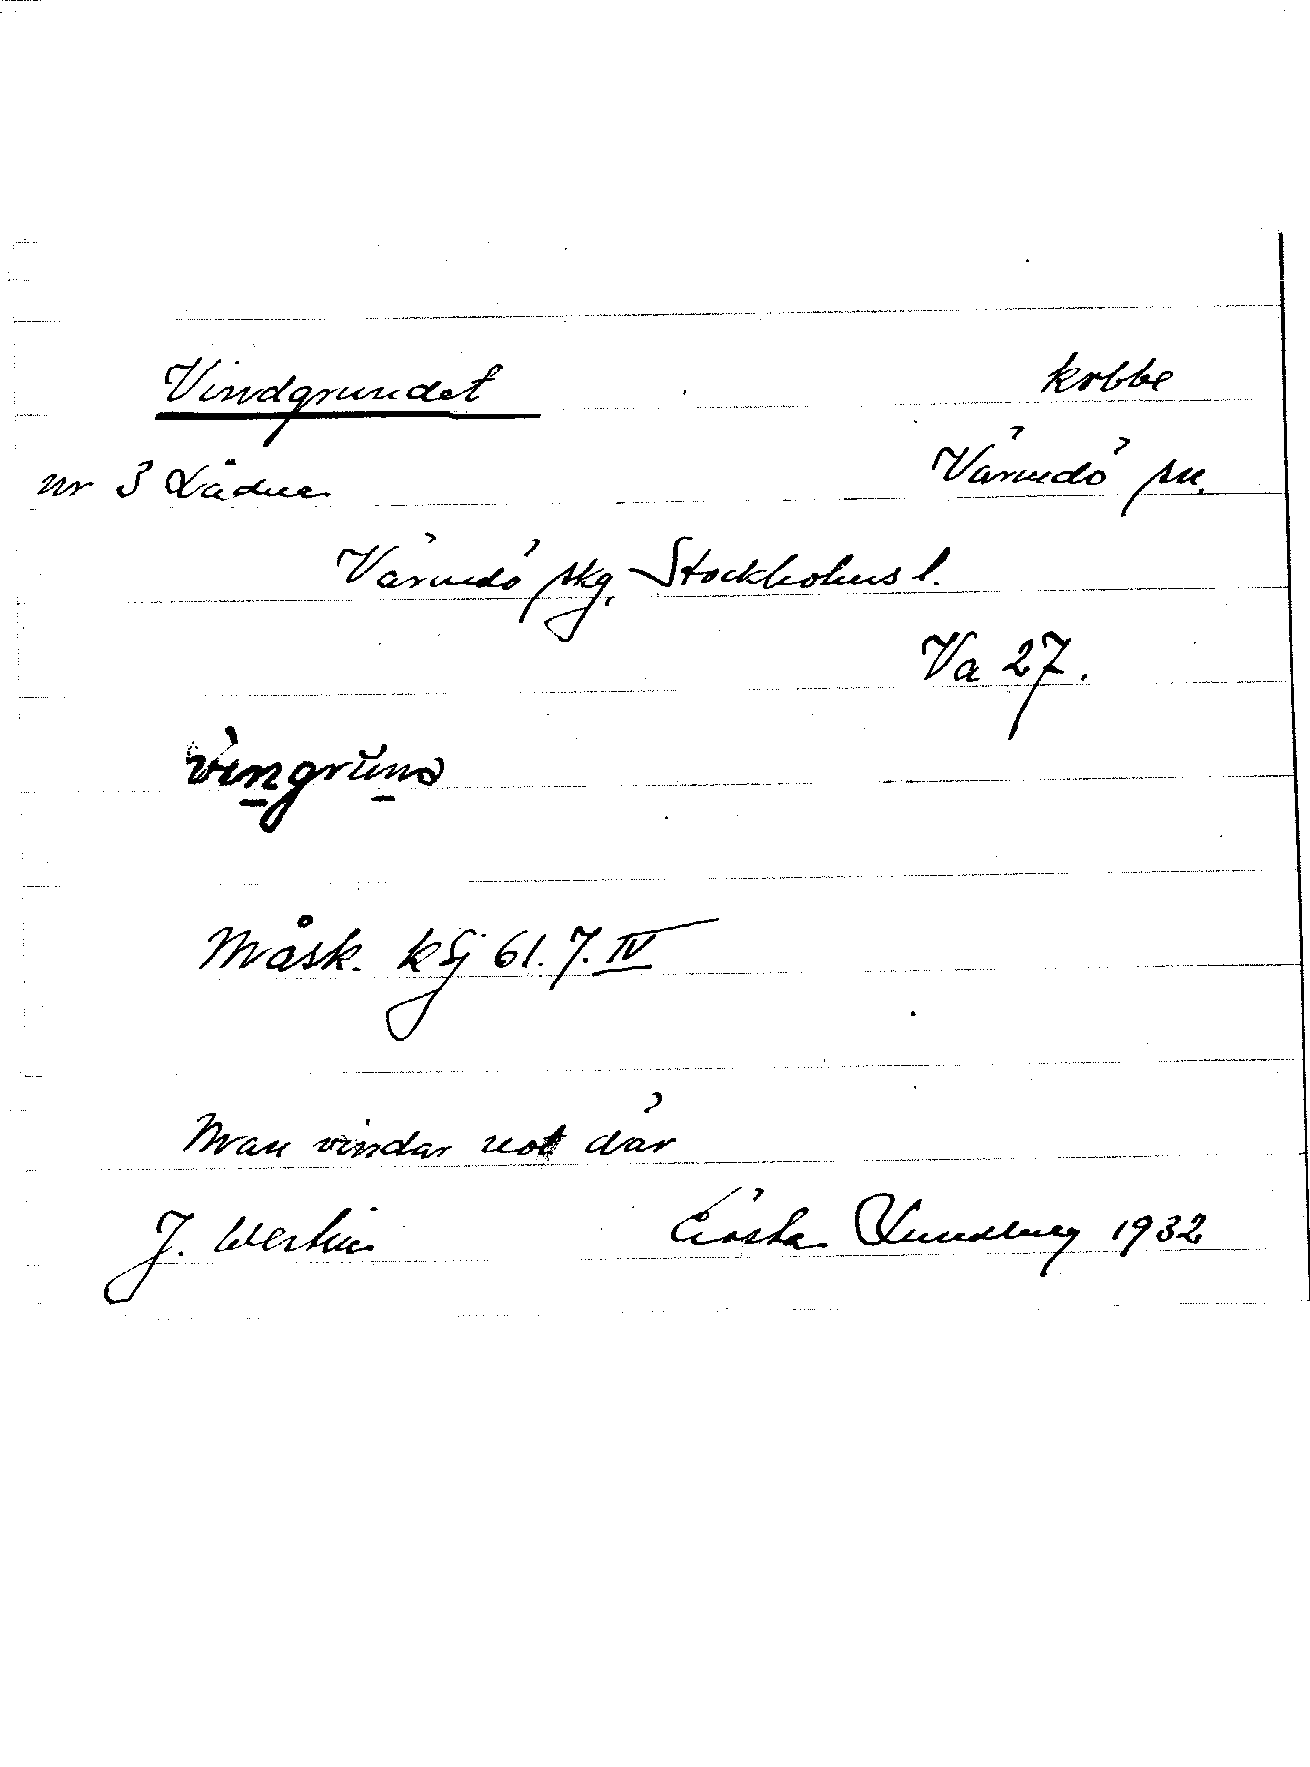 Vindgrundet kobbe
nr 3 Lådna Värmdö sn.
Värmdö skg. Stockholms l.
Va 27.
vingrund
Måsk. kfj 61. 7. IV
Man vindar not där
J. Westin Gösta Lundberg 1932